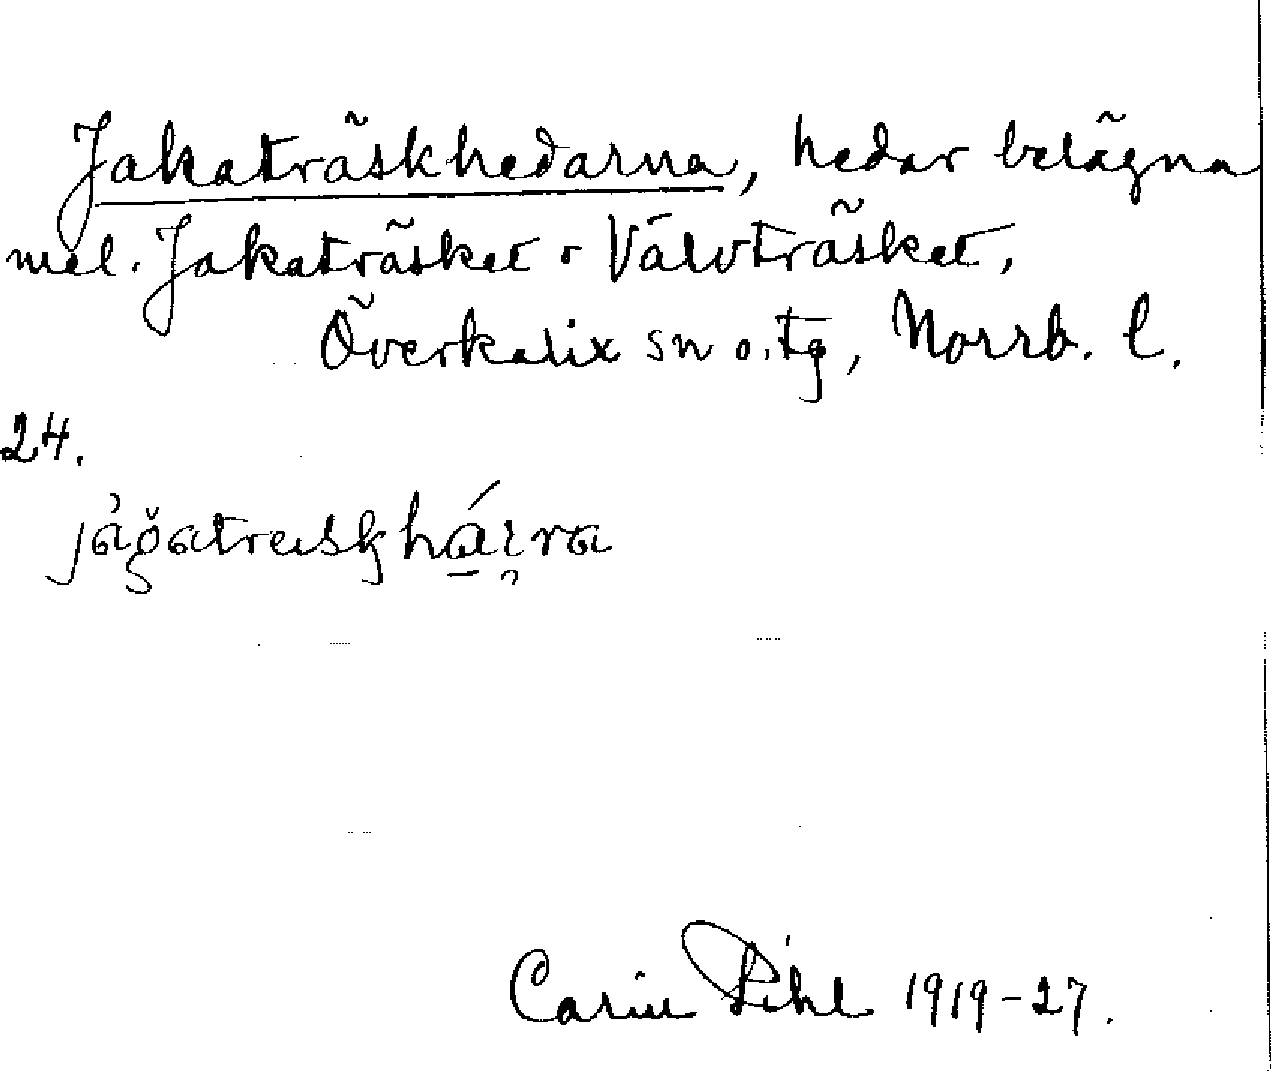 Jakaträskhedarna, hedar belägna
mel. Jakaträsket o Valvträsket,
Överkalix sn o. tg, Norrb. l.
24.
Carin Pihl 1919-27.